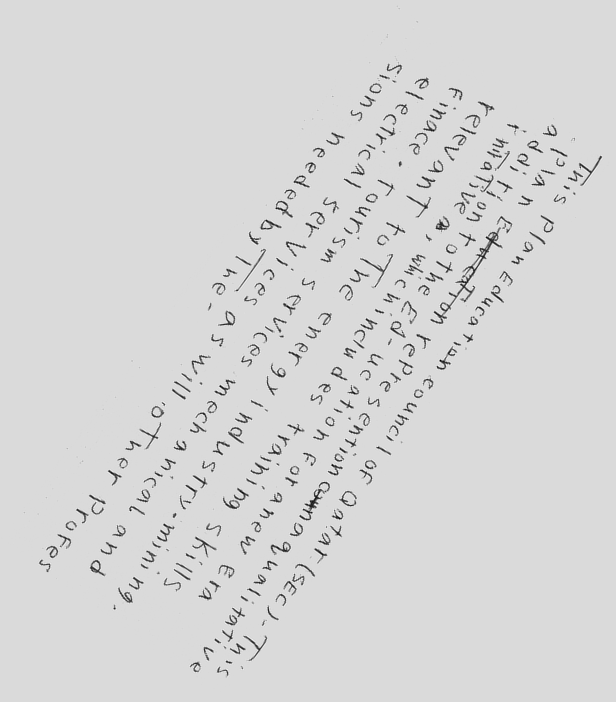 This plan Education council of Qatar (SEC). This
a plan represention a qualitative
addition to the Ed-ucation for a new Era
initative, which includes training skills
relevant to The energy industry. mining.
Finace. tourism services mechanical and
electrical services as will. other profes
sions needed by The-